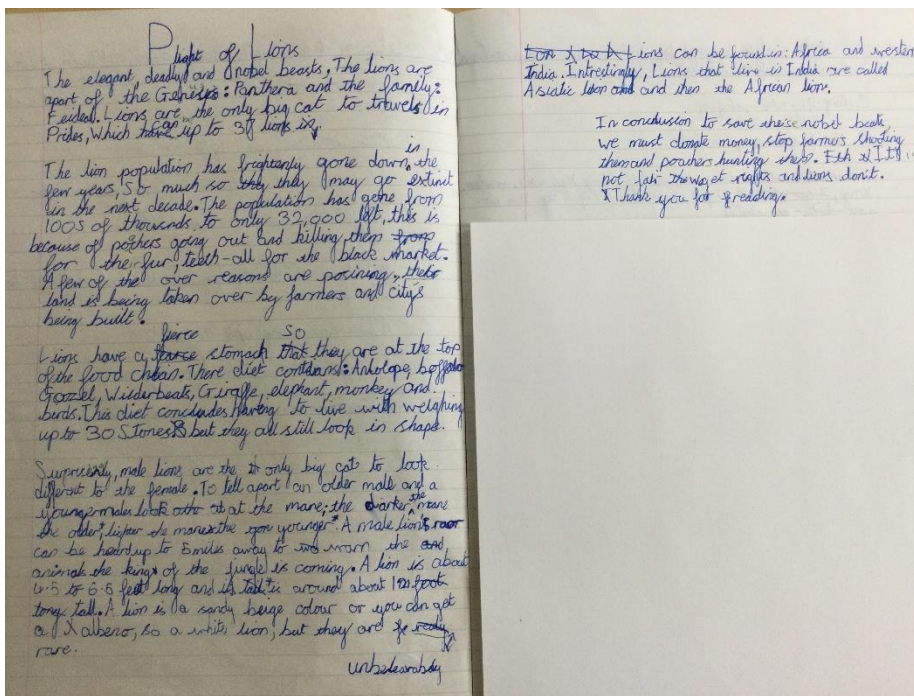 Plight of Lions
The elegant, deadly and nobel beasts, The lions are
apart of the Genises: Panthera and the family:
Feidal. Lions are the only big cat to travels in
Prides, Which can be up to 30 lions.
The lion population has frightenly gone down in the
few years, So much so they may go extinct
in the next decade. The population has gone from
100S of thowands to only 32,000 left, this is
because of pothers going out and killing them
for their fur, teeth-all for the black market.
A few of the over reasons are posining, their
land is being taken over by farmers and city's
being built.
Lions have a fierce stomach so they are at the top
of the food chean. There diet contains: Antolope, boffalo
Gazzel, Wilderbeats, Giraffe, elephant, monkey and
birds. This diet concludes having to live with weighing
up to 30 Stones but they all still look in shape.
Surpriceinly, male lions are the only big cat to look
different to the female. To tell apart an older male and a
younger males look at the mane; the darker the mane
the older, ligher the mane the younger. A male lion's roar
can be heard up to 5 miles away to worn the
animals the king of the jungle is coming. A lion is about
4.5 to 6.5 feet long and is around about 1m
tall. A lion is a sandy beige colour or you can get
a albeno, so a white lion, but they are unbelearabley
rare.
Lions can be found in: Africa and western
India. Intrestingly, Lions that live in India are called
Asiatic lion and then the African lion.
In conclusion to save these nobel beats
we must donate money, stop farmers shooting
them and poachers hunting them. It's
not fair the we get rights and lions don't.
Thank you for reading.